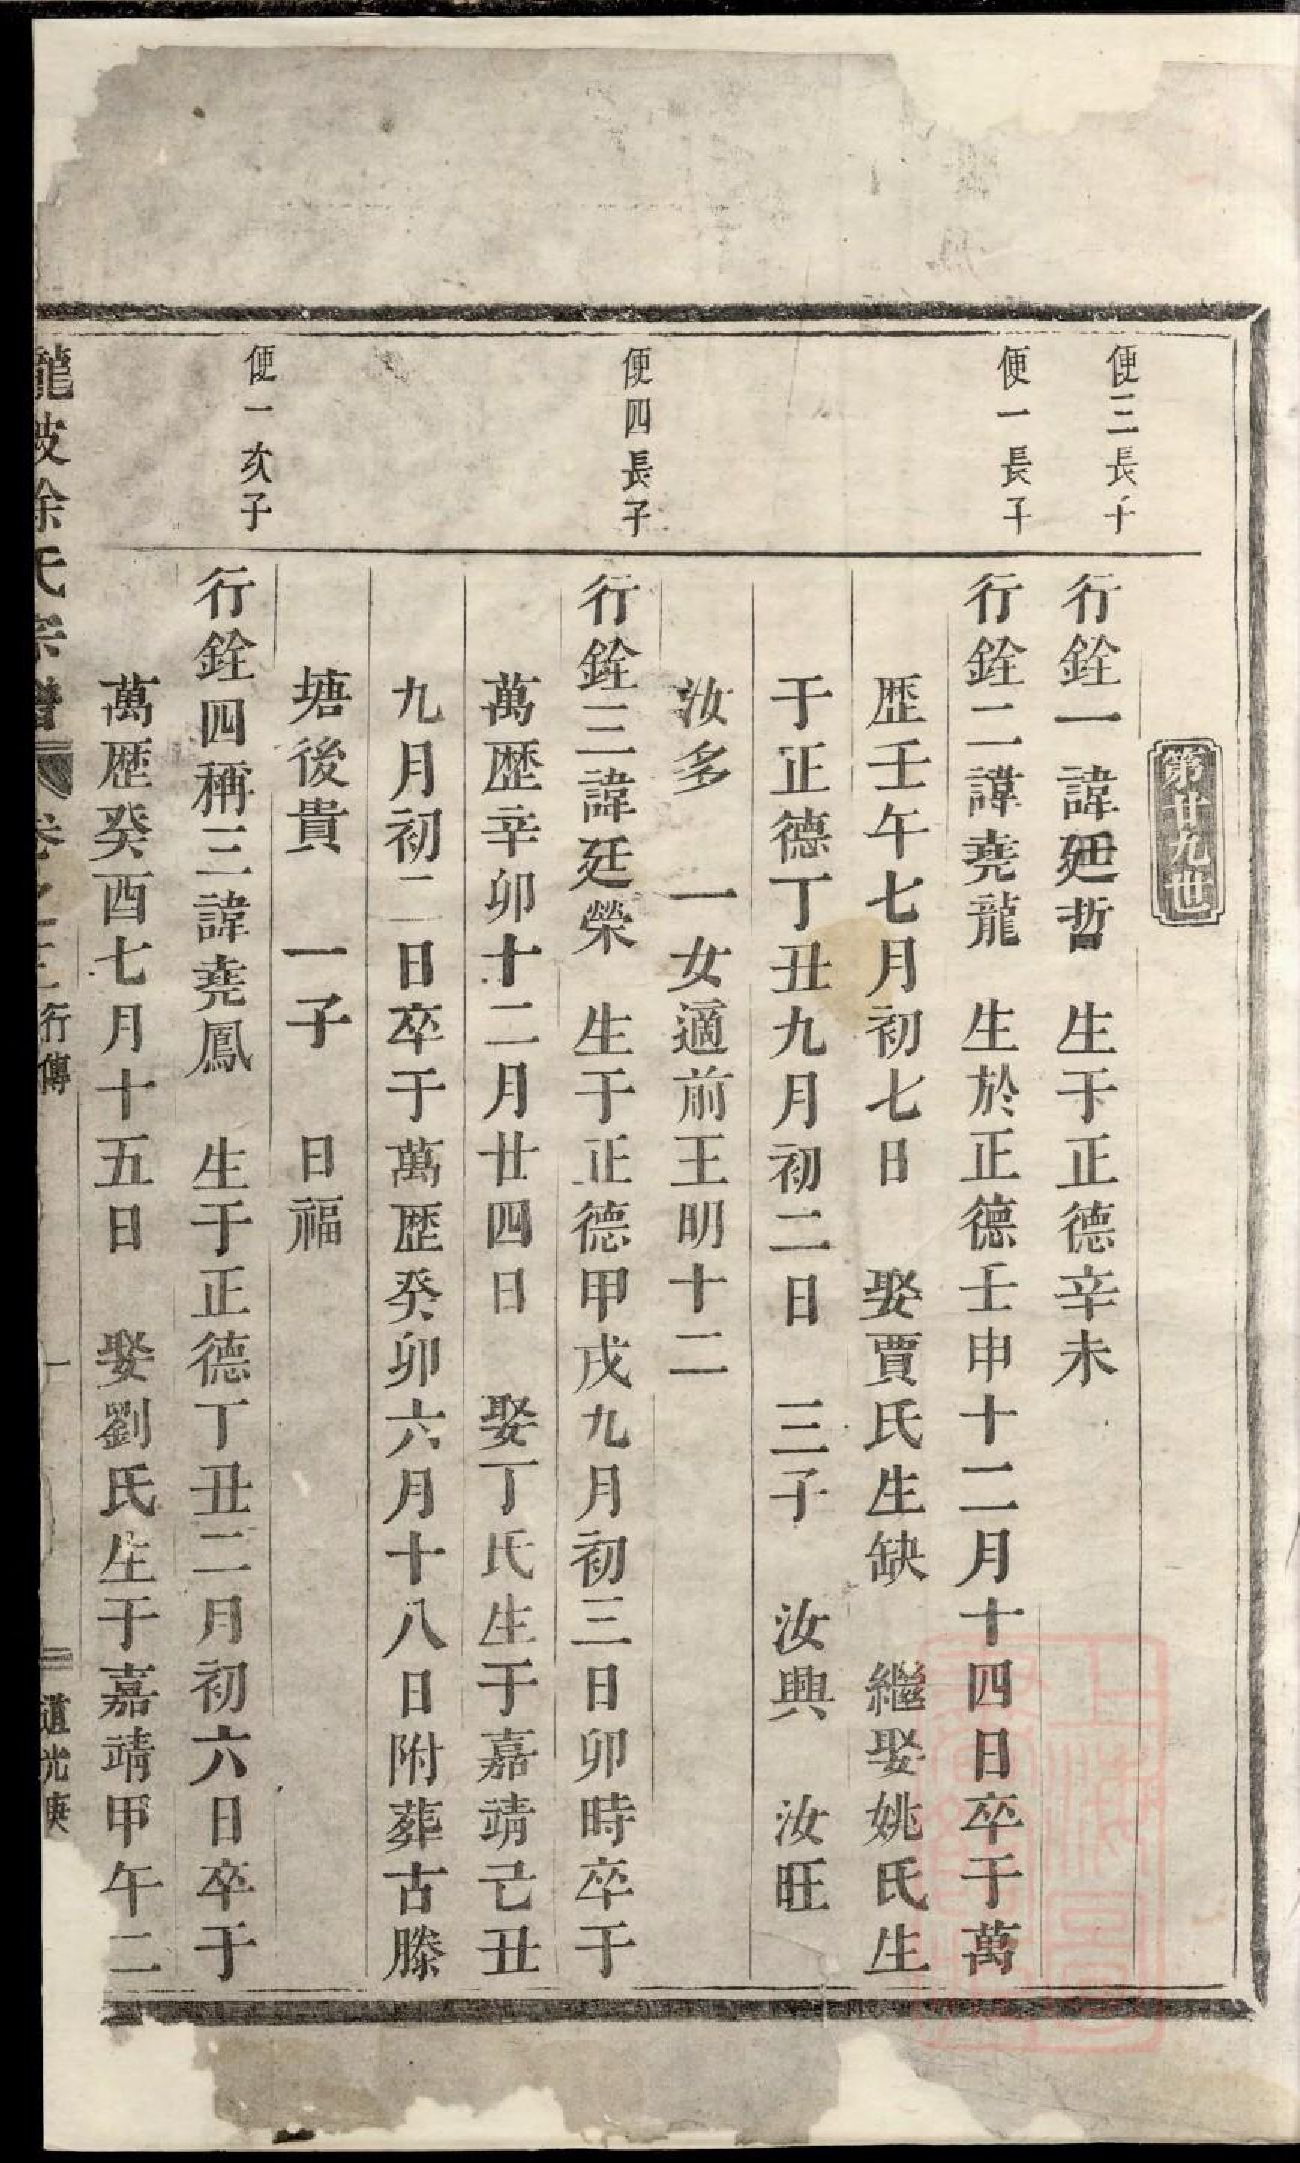 第廿九世
便三長子
行銓一諱廷哲　生于正德辛未
便一長子
行銓二諱堯龍　生於正德壬申十二月十四日卒于萬
歷壬午七月初七日　娶賈氏生缺　繼娶姚氏生
于正德丁丑九月初二日　三子　汝興　汝旺
汝多　一女適前王明十二
便四長子
行銓三諱廷榮　生于正德甲戌九月初三日卯時卒于
萬歷辛卯十二月廿四日　娶丁氏生于嘉靖己丑
九月初二日卒于萬歷癸卯六月十八日附葬古滕
塘後貴　一子　日福
便一次子
行銓四稱三諱堯鳳　生于正德丁丑二月初六日卒于
萬歷癸酉七月十五日　娶劉氏生于嘉靖甲午二
龍坡徐氏宗譜　卷之　行傳　一　道光庚